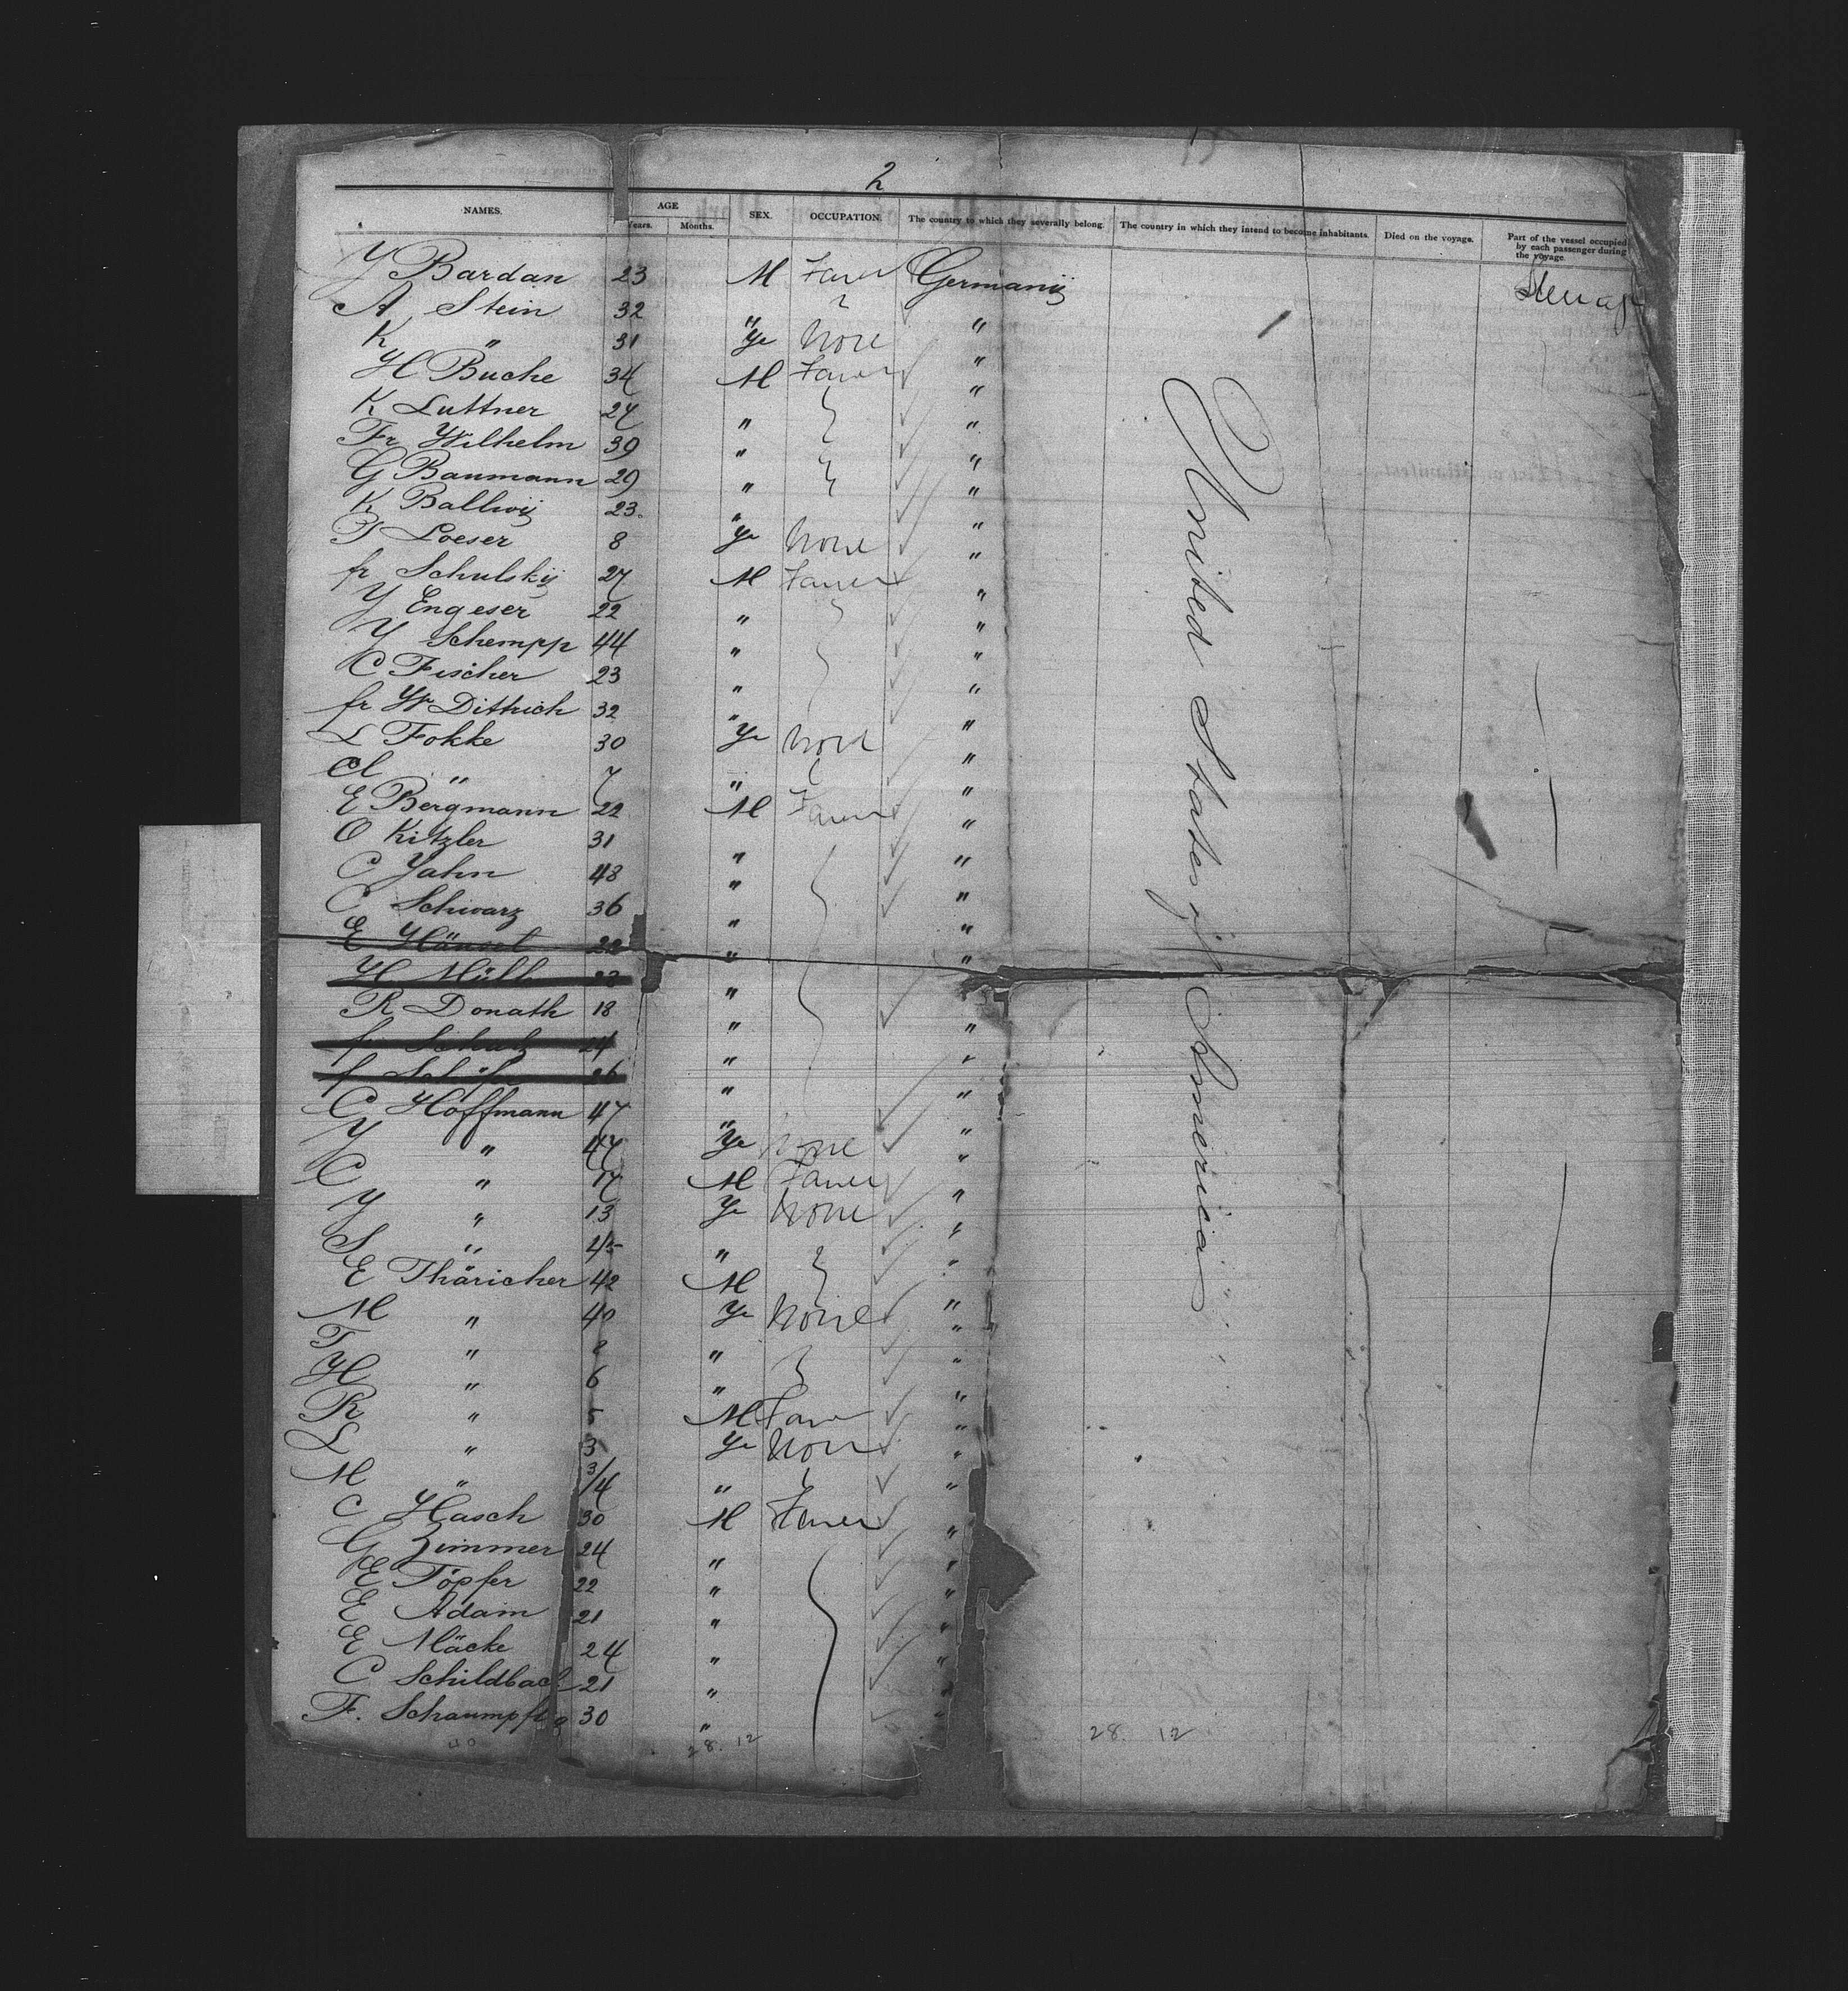 2
NAMES. AGE SEX. OCCUPATION. The country to which they severally belong. The country in which they intend to become inhabitants. Died on the voyage. Part of the vessel occupied by each passenger during the voyage.
Years. Months.
Y Bardan 23 M Germany
A Stein 32 "
K " 31 Fe None "
H Buche 34 M "
K Luttner 27 " "
Fr Wilhelm 39 " "
G Baumann 29 " "
K Ballwij 23. " "
P Loeser 8 Fe None "
fr Schulskij 27 M "
Y Engeser 22 " "
Y Schempp 44 " "
C Fischer 23 " "
fr W Dittrich 32 " "
L Fokke 30 Fe None "
" 7 " "
E Bergmann 22 M "
O Kitzler 31 " "
C Yahn 48 " "
C Schwarz 36 " "
E Hänsel 22 " "
H Müll 23 "
R Donath 18 " "
fr Schulz 24 " "
f 26 " "
C Hoffmann 47 " "
Y " 47 Fe None "
C " 17 M "
Y " 13 Fe None "
S " "
E Thäricher 42 M
M " 40 Fe None "
T " " "
H " 6 " "
R " 5 M "
L " 3 Fe None "
M " 3/4 " "
C Hasch 30 M "
G Zimmer 24 " "
E Töpfer 22 " "
E Adam 21 " "
E Mäcke 24 " "
C Schildbach 21 " "
F. Schaumpfl 30 " "
United States of America
28. 12
28. 12